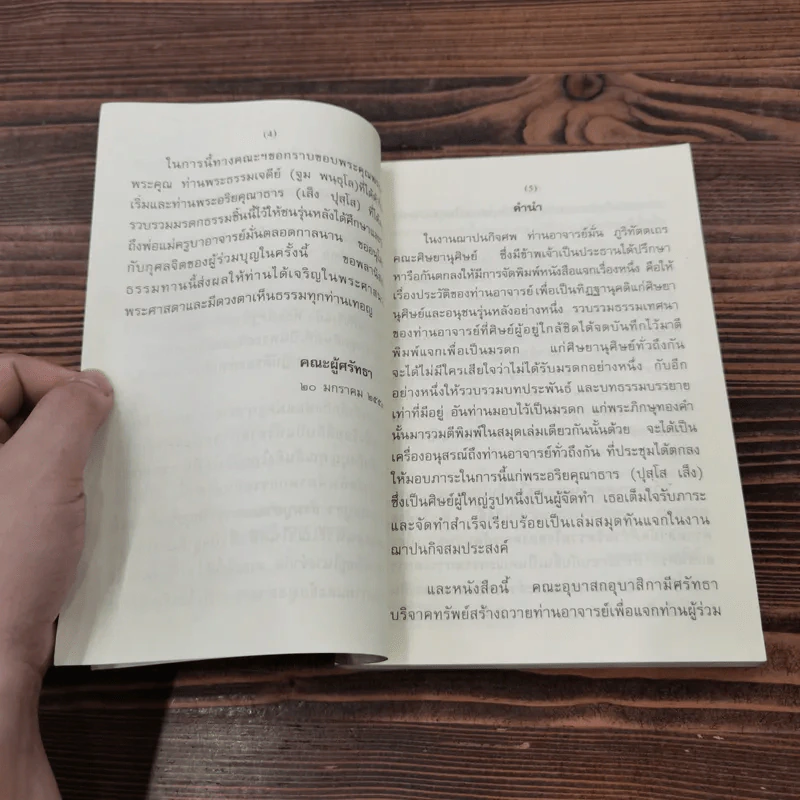 (4)
ในการนี้ทางคณะฯขอกราบขอบพระคุณ
พระคุณ ท่านพระธรรมเจดีย์ (จูม พนฺธุโล)ที่ได้
เริ่มและท่านพระอริยคุณาธาร (เส็ง ปุสฺโส) ที่ได้
รวบรวมมรดกธรรมชิ้นนี้ไว้ให้ชนรุ่นหลังได้ศึกษาและ
ถึงพ่อแม่ครูบาอาจารย์มั่นตลอดกาลนาน
กับกุศลจิตของผู้ร่วมบุญในครั้งนี้ ขอพลานิ
ธรรมทานนี้ส่งผลให้ท่านได้เจริญในพระศาสน
พระศาสดาและมีดวงตาเห็นธรรมทุกท่านเทอญ
คณะผู้ศรัทธา
๒๐ มกราคม
(5)
คำนำ
ในงานฌาปนกิจศพ ท่านอาจารย์มั่น ภูริทัตตเถร
คณะศิษยานุศิษย์ ซึ่งมีข้าพเจ้าเป็นประธานได้ปรึกษา
หารือกันตกลงให้มีการจัดพิมพ์หนังสือแจกเรื่องหนึ่ง คือให้
เรื่องประวัติของท่านอาจารย์ เพื่อเป็นทิฏฐานุคติแก่ศิษยา
นุศิษย์และอนุชนรุ่นหลังอย่างหนึ่ง รวบรวมธรรมเทศนา
ของท่านอาจารย์ที่ศิษย์ผู้อยู่ใกล้ชิดได้จดบันทึกไว้มาตี
พิมพ์แจกเพื่อเป็นมรดก แก่ศิษยานุศิษย์ทั่วถึงกัน
จะได้ไม่มีใครเสียใจว่าไม่ได้รับมรดกอย่างหนึ่ง กับอีก
อย่างหนึ่งให้รวบรวมบทประพันธ์ และบทธรรมบรรยาย
เท่าที่มีอยู่ อันท่านมอบไว้เป็นมรดก แก่พระภิกษุทองคำ
นั้นมารวมตีพิมพ์ในสมุดเล่มเดียวกันนั้นด้วย จะได้เป็น
เครื่องอนุสรณ์ถึงท่านอาจารย์ทั่วถึงกัน ที่ประชุมได้ตกลง
ให้มอบภาระในการนี้แก่พระอริยคุณาธาร (ปุสฺโส เส็ง)
ซึ่งเป็นศิษย์ผู้ใหญ่รูปหนึ่งเป็นผู้จัดทำ เธอเต็มใจรับภาระ
และจัดทำสำเร็จเรียบร้อยเป็นเล่มสมุดทันแจกในงาน
ฌาปนกิจสมประสงค์
และหนังสือนี้ คณะอุบาสกอุบาสิกามีศรัทธา
บริจาคทรัพย์สร้างถวายท่านอาจารย์เพื่อแจกท่านผู้ร่วม